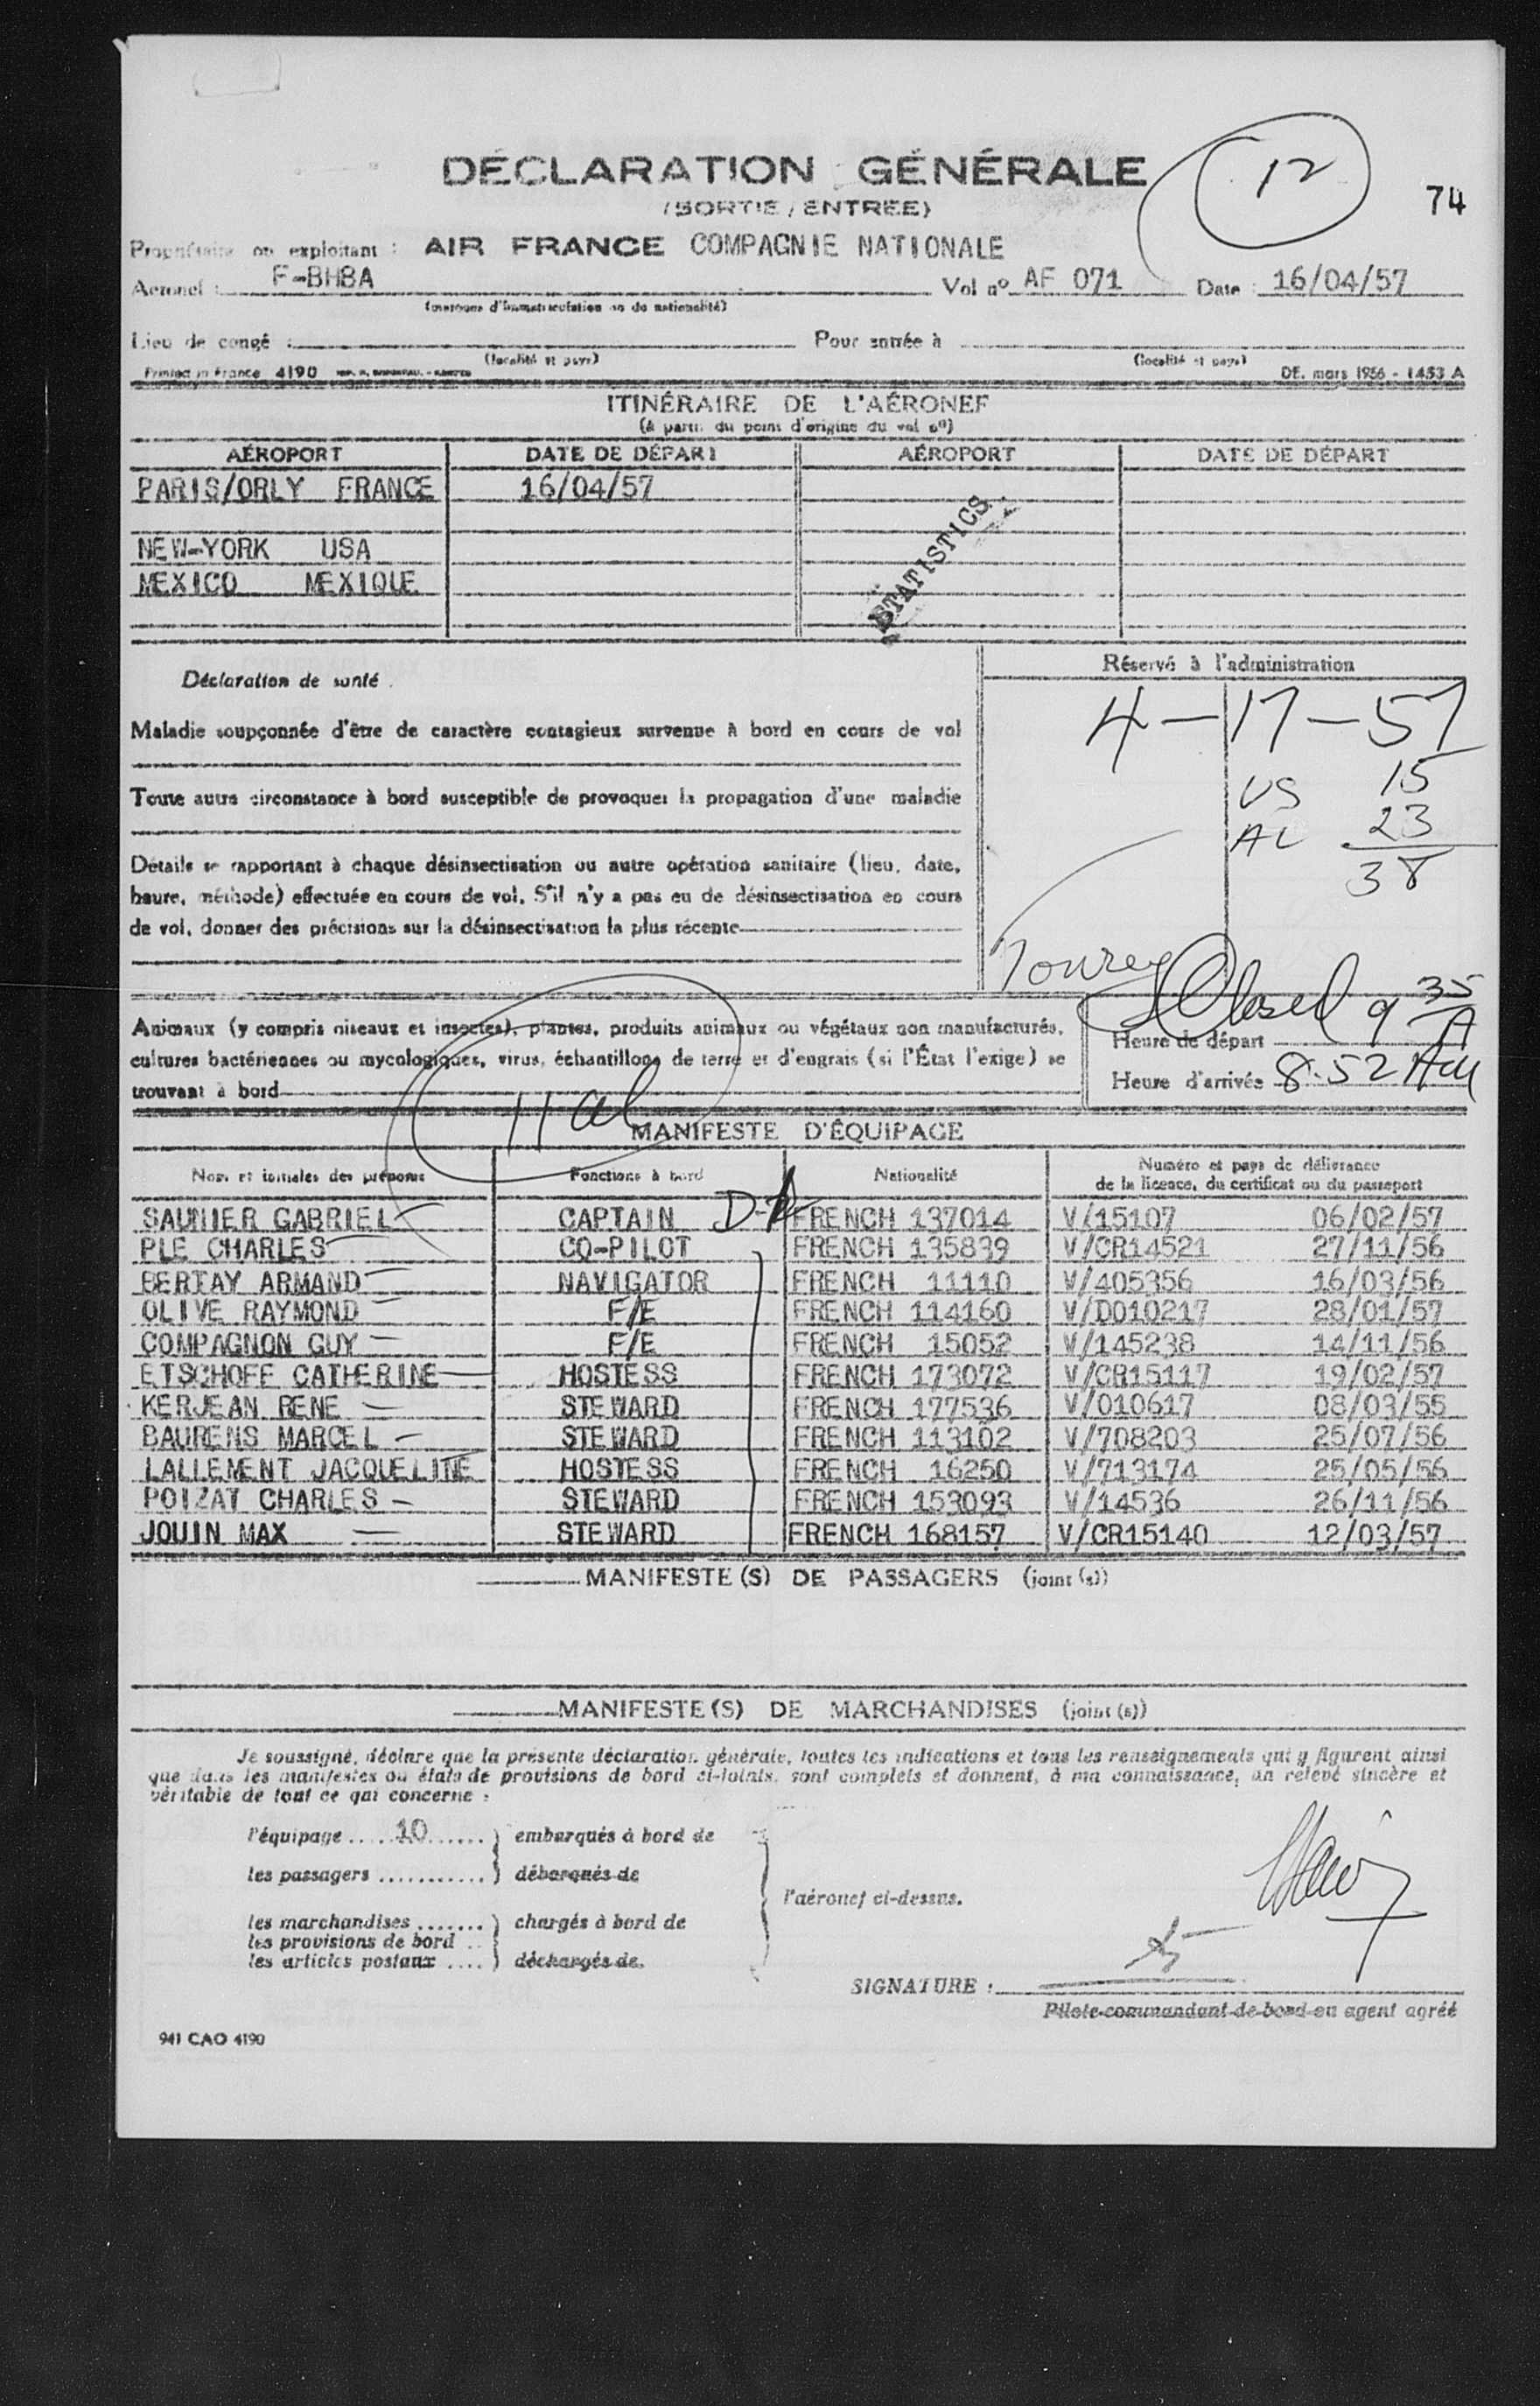 12
74
DÉCLARATION GÉNÉRALE
(SORTIE / ENTRÉE)
Propriétaire ou exploitant : AIR FRANCE COMPAGNIE NATIONALE
Aéronef : F-BHBA Vol nº AF 071 Date : 16/04/57
(marques d'immatriculation ou de nationalité)
Lieu de congé : Pour entrée à
(localité et pays) (localité et pays)
Printed in France 4190 DE. mars 1956 - 1453 A
ITINÉRAIRE DE L'AÉRONEF
(à partir du point d'origine du vol nº)
AÉROPORT DATE DE DÉPART AÉROPORT DATE DE DÉPART
PARIS/ORLY FRANCE 16/04/57
NEW-YORK USA
MEXICO MEXIQUE
STATISTICS
Déclaration de santé
Réservé à l'administration
Maladie soupçonnée d'être de caractère contagieux survenue à bord en cours de vol
4-17-57
Toute autre circonstance à bord susceptible de provoquer la propagation d'une maladie
US 15
AL 23
38
Détails se rapportant à chaque désinsectisation ou autre opération sanitaire (lieu, date,
heure, méthode) effectuée en cours de vol. S'il n'y a pas eu de désinsectisation en cours
de vol, donner des précisions sur la désinsectisation la plus récente
Closed 9 35 A
Animaux (y compris oiseaux et insectes), plantes, produits animaux ou végétaux non manufacturés,
cultures bactériennes ou mycologiques, virus, échantillons de terre et d'engrais (si l'État l'exige) se
trouvant à bord
Heure de départ
Heure d'arrivée 8.52 AM
11 al
MANIFESTE D'ÉQUIPAGE
Nom et initiales des prénoms Fonctions à bord Nationalité Numéro et pays de délivrance
de la licence, du certificat ou du passeport
SAUNIER GABRIEL CAPTAIN FRENCH 137014 V/15107 06/02/57
PLE CHARLES CO-PILOT FRENCH 135839 V/CR14521 27/11/56
BERTAY ARMAND NAVIGATOR FRENCH 11110 V/405356 16/03/56
OLIVE RAYMOND F/E FRENCH 114160 V/D010217 28/01/57
COMPAGNON GUY F/E FRENCH 15052 V/145238 14/11/56
ETSCHOFF CATHERINE HOSTESS FRENCH 173072 V/CR15117 19/02/57
KERJEAN RENE STEWARD FRENCH 177536 V/010617 08/03/55
BAURENS MARCEL STEWARD FRENCH 113102 V/708203 25/07/56
LALLEMENT JACQUELINE HOSTESS FRENCH 16250 V/713174 25/05/56
POIZAT CHARLES STEWARD FRENCH 153093 V/14536 26/11/56
JOUIN MAX STEWARD FRENCH 168157 V/CR15140 12/03/57
MANIFESTE(S) DE PASSAGERS (joint (s))
MANIFESTE(S) DE MARCHANDISES (joint (s))
Je soussigné, déclare que la présente déclaration générale, toutes les indications et tous les renseignements qui y figurent ainsi
que dans les manifestes ou états de provisions de bord ci-joints, sont complets et donnent, à ma connaissance, un relevé sincère et
véritable de tout ce qui concerne :
l'équipage .... 10 ...... embarqués à bord de
les passagers ........... débarqués de
l'aéronef ci-dessus.
les marchandises ....... chargés à bord de
les provisions de bord ..
les articles postaux .... déchargés de.
SIGNATURE :
Pilote commandant de bord ou agent agréé
941 CAO 4190